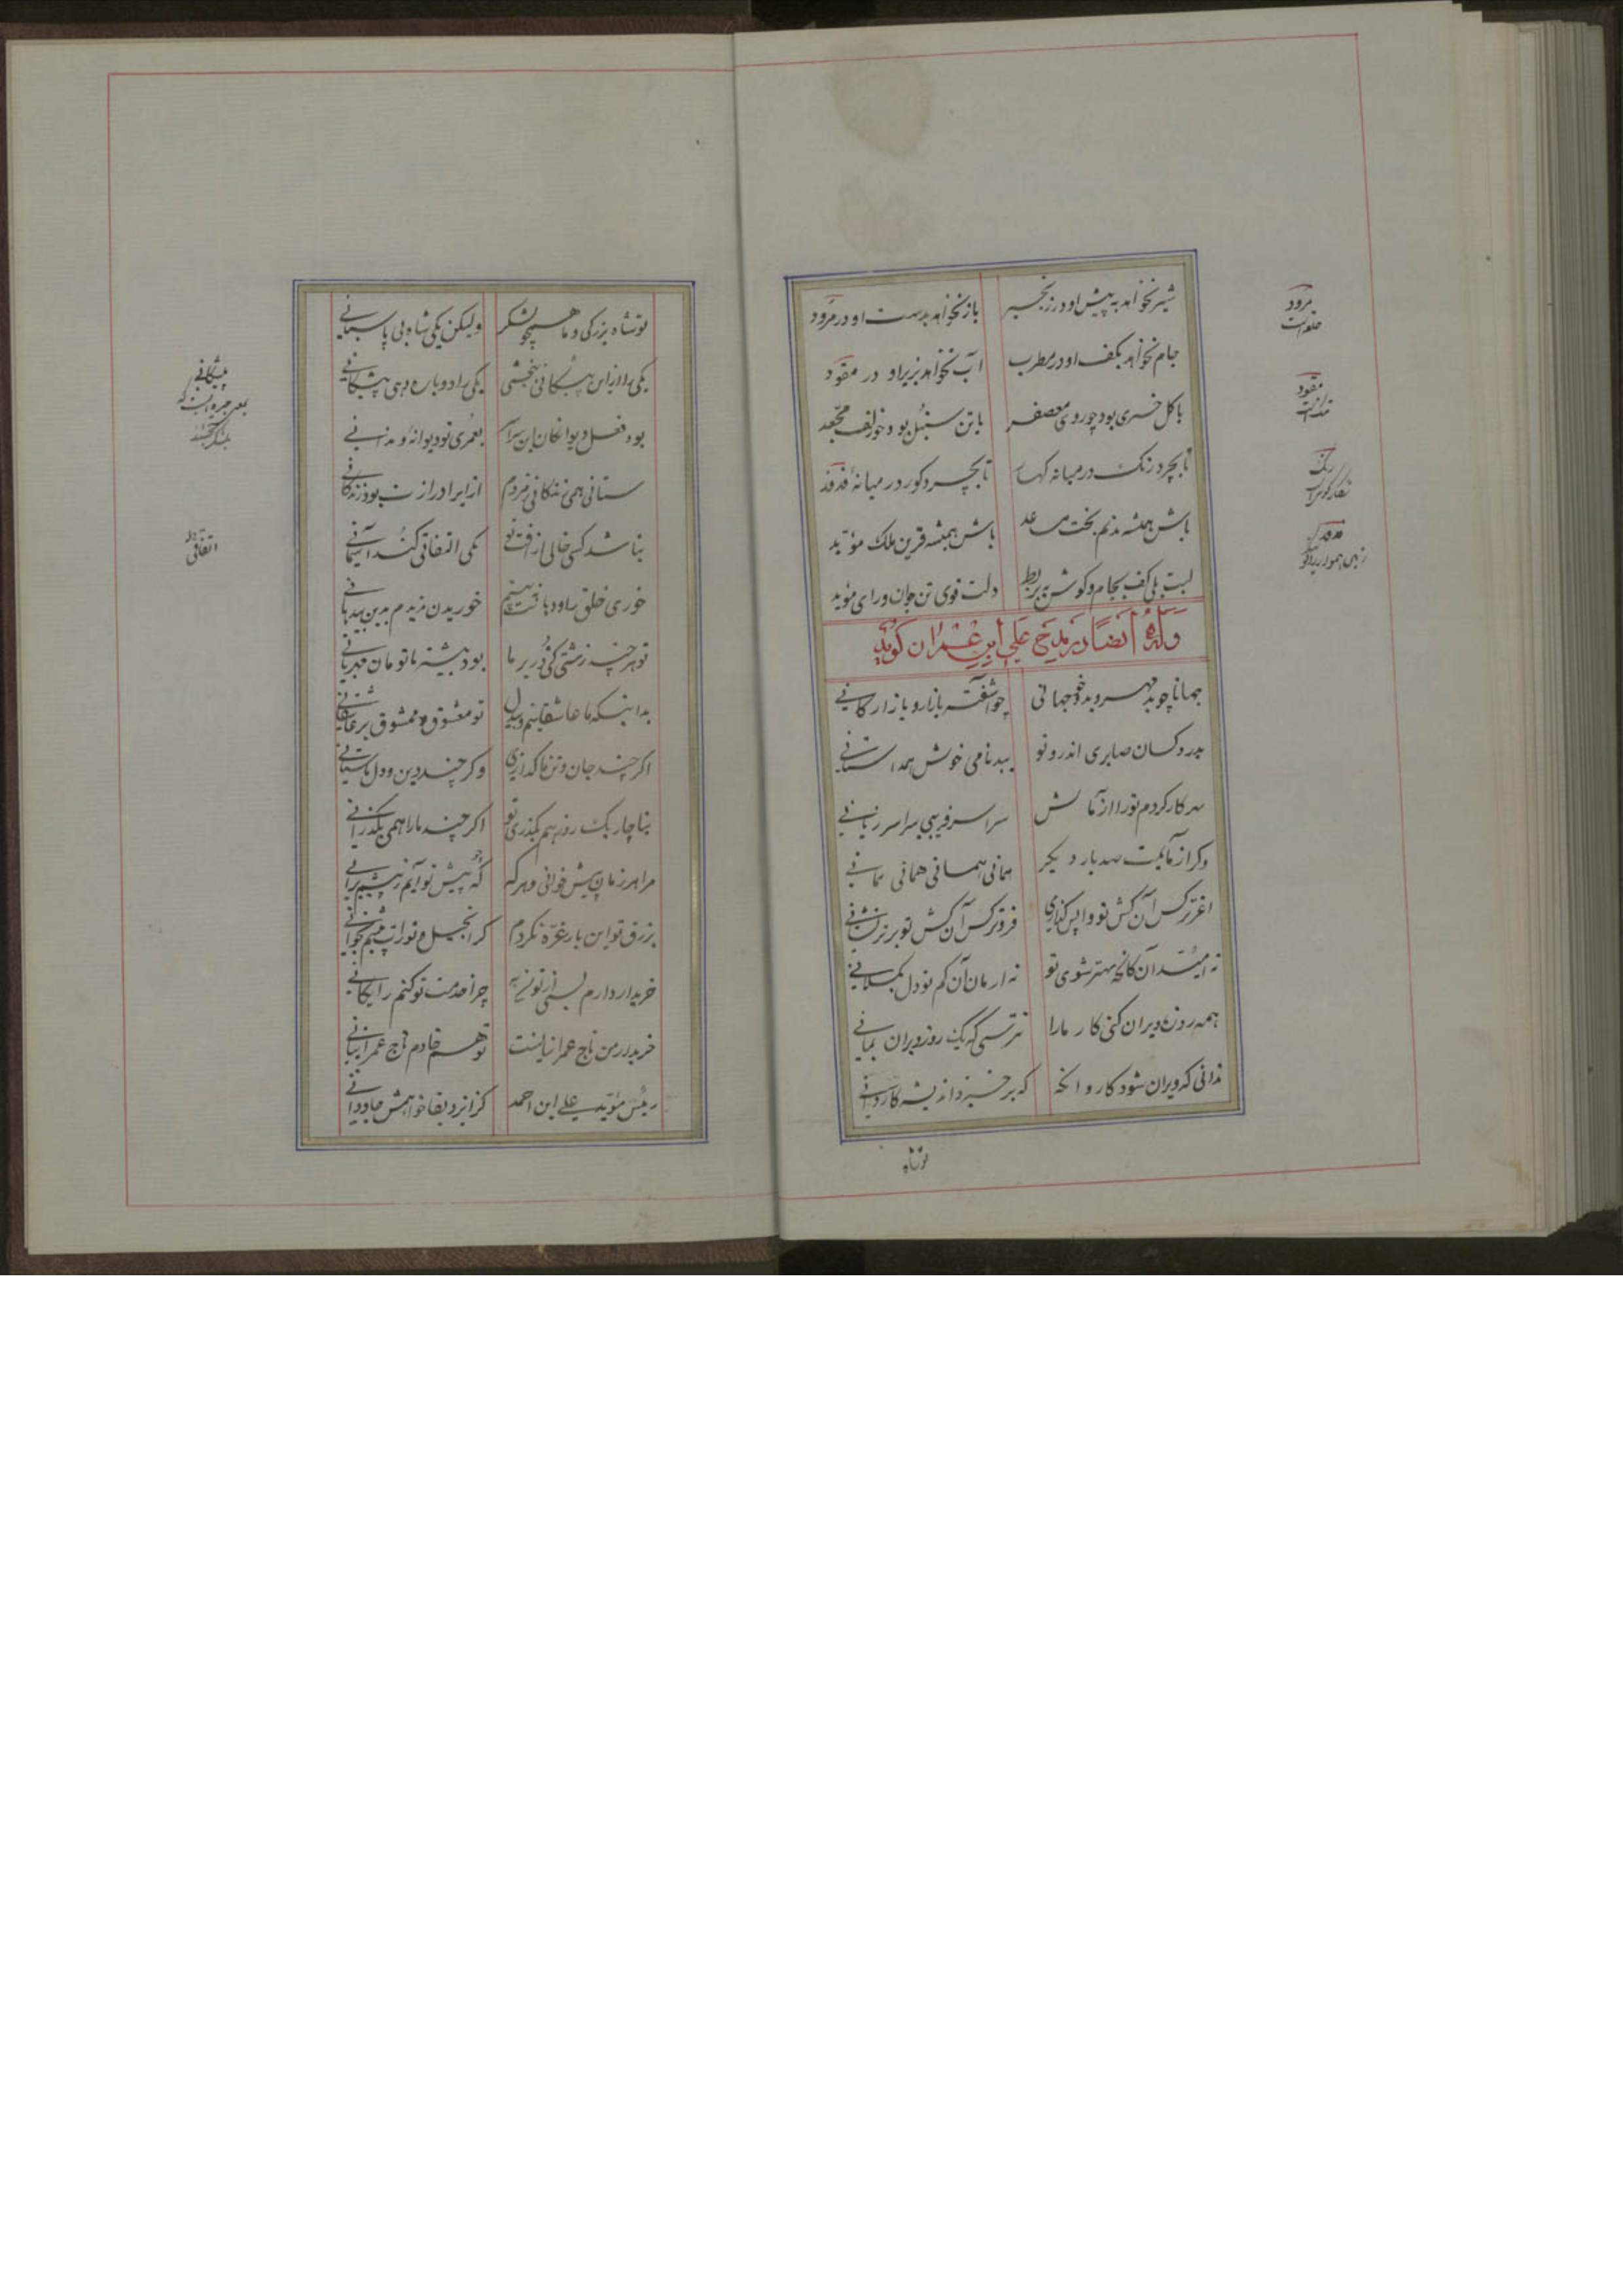 شیر نخواهد به پیش او در زنجیر باز نخواهد بدست او در مرود
جام نخواهد بکف او در مطرب آب نخواهد بزیر او در مقود
با کل خیری بود چو روی معصفر با تن سنبل بود چو زلف مجعد
تا بچرد رنک در میانه کهسار تا بچرد کور در میانه فدفد
باش همیشه ندیم بخت مساعد باش همیشه قرین ملک مؤبد
لبت بمی کف بجام و کوش به بربط دلت قوی تن جوان و رای مؤید
وله ایضا در مدح علی ابن عمران کوید
جهانا چه بد مهر و بد خو جهانی چو آشفته بازار و بازارکانی
بدرد کسان صابری اندر و تو ببدنامی خوش همداستانی
بهر کار کردم تو را آزمایش سراسر فریبی سراسر زیانی
و کر آزمایمت صد بار دیکر همانی همانی همانی همانی
اغر تر کس آن کش تو واپس کذاری فروتر کس آن کش تو برتر نشانی
نه امید آن کانچه بهتر شوی تو نه ارمان آن کم تو دل بکسلانی
همه روز ویران کنی کار ما را نترسی که یک روز ویران بمانی
ندانی که ویران شود کاروانکه که برخیزد اندیشه کاروانی
تو شاه
تو شاه بزرکی و ما همچو لشکر ولیکن یکی شاه بی پاسبانی
یکی را از این بیستکانی نبخشی یکی را دوباره دهی بیستکانی
بود فعل دیوانکان این سراسر بعمری تو دیوانه و ندانی
ستانی همی زندکانی ز مردم ازیرا درازت بود زندکانی
نباشد کسی خالی از آفت تو مکی اتفاقی کند آسمانی
خوری خلق را و دهانت نبینیم خوریدن ندیدم بدین بیدهانی
تو هر چند زشتی کنی بر ما بود بیشتر با تو مان مهربانی
بدانکه ما عاشقانیم و بیدل تو معشوق و معشوق بر عاشقانی
اکر چند جان و تن ما کدازی و کر چند دین و دل ما ستانی
بناچار یک روز هم بکذری تو اکر چند ما را همی بکذرانی
مرا هر زمان پیش خوانی و هر که که پیش تو آیم ز پیشم برانی
بزرق تو این بار غره نکردم کر انجیل و تورات پیشم بخوانی
خریدار دارم بسی از تو به چرا خدمت تو کنم رایکانی
خریدار من تاج عمرانیانست تو هم خادم تاج عمرانیانی
رئیس مؤید علی ابن احمد کز ایزد بقا خواهمش جاودانی
مرود
مقود
رنک
فدفد
بیستکانی
اتفاقی